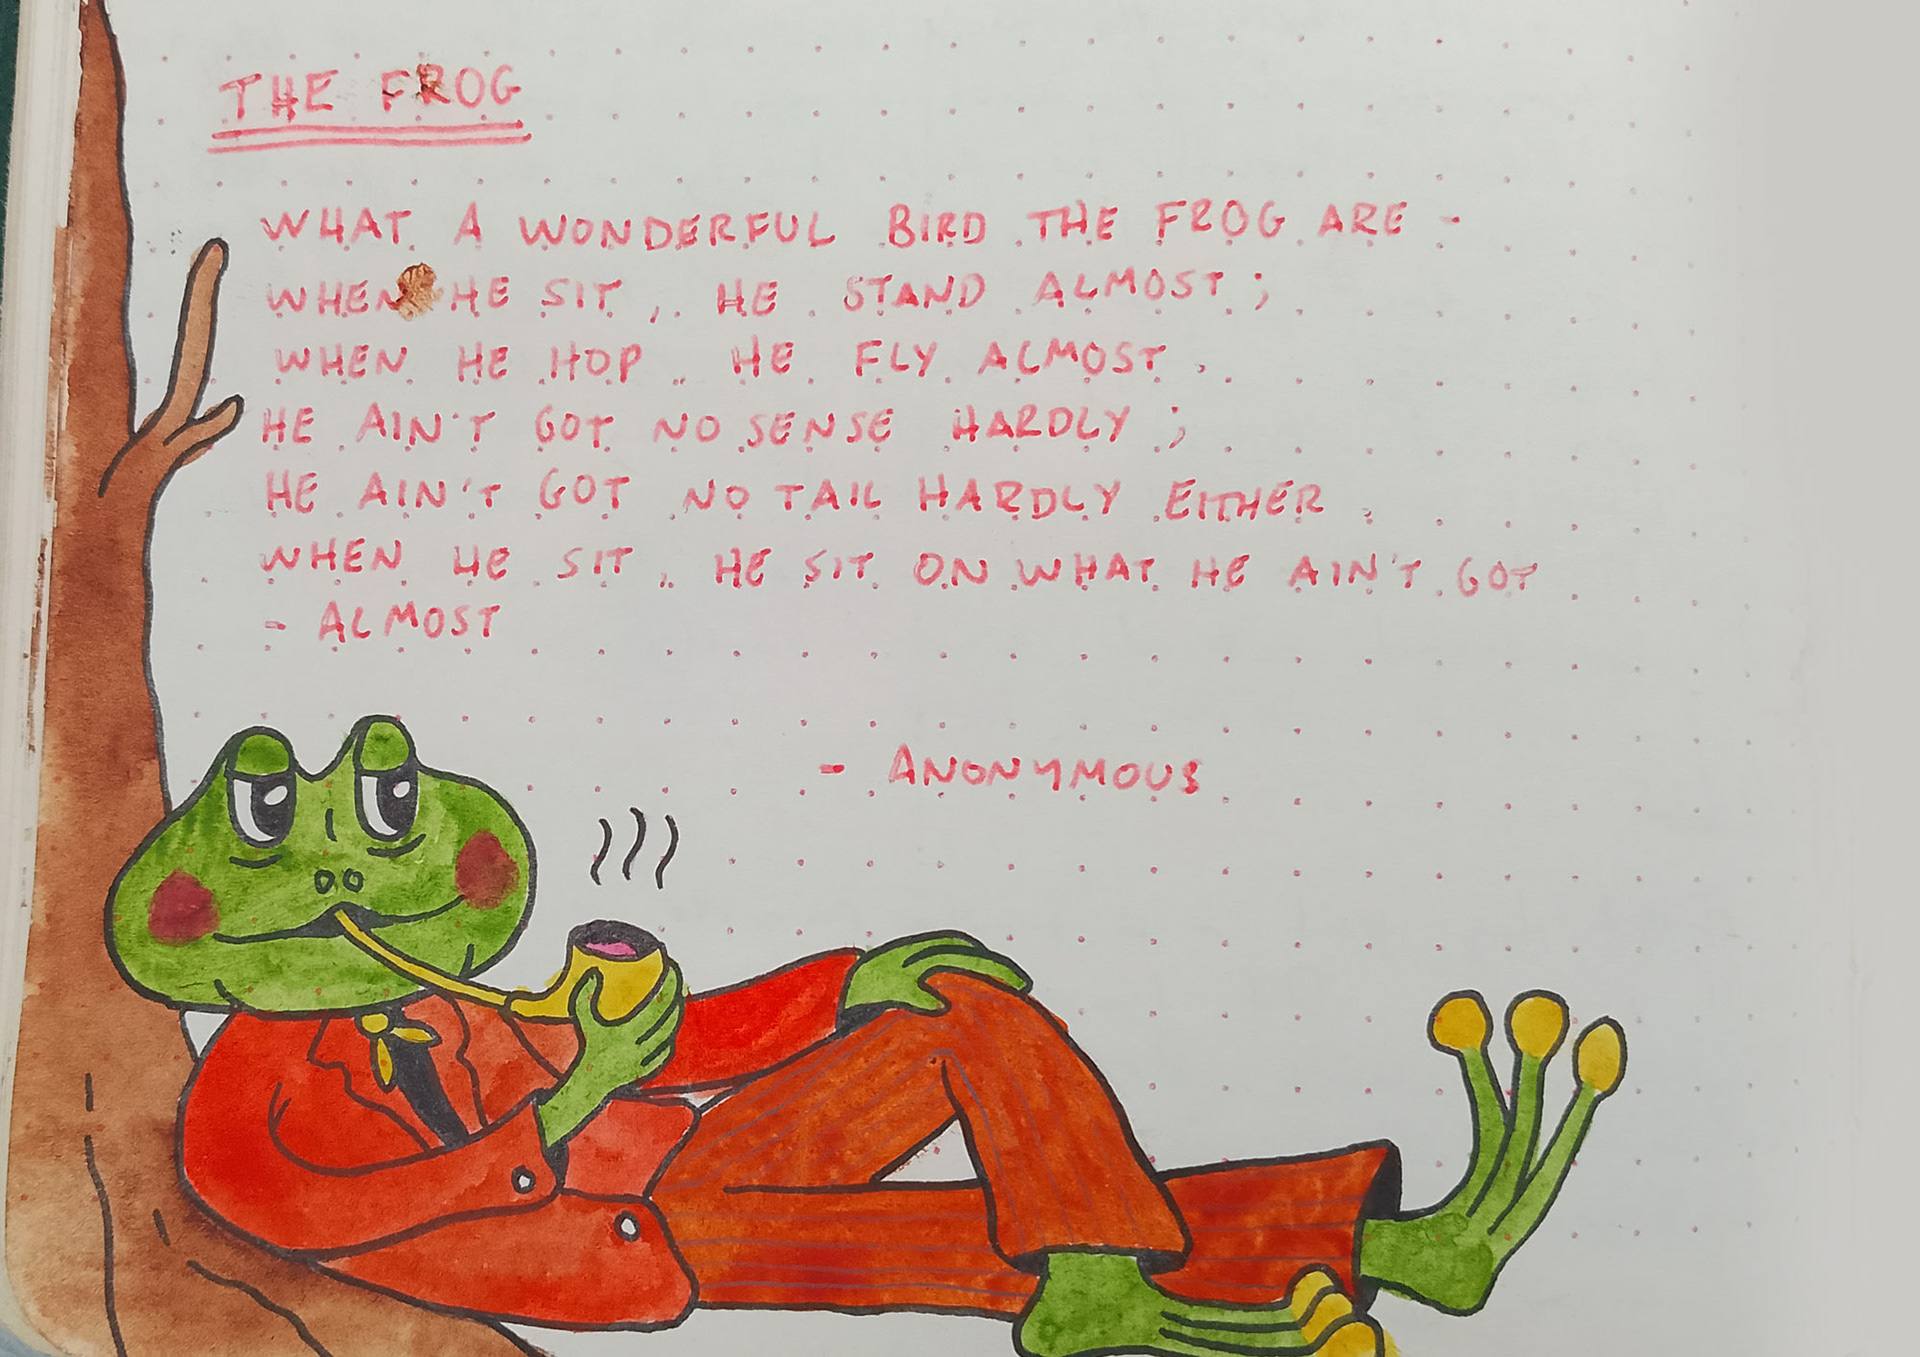 THE FROG
WHAT A WONDERFUL BIRD THE FROG ARE -
WHEN HE SIT, HE STAND ALMOST;
WHEN HE HOP, HE FLY ALMOST.
HE AIN'T GOT NO SENSE HARDLY;
HE AIN'T GOT NO TAIL HARDLY EITHER.
WHEN HE SIT, HE SIT ON WHAT HE AIN'T GOT
- ALMOST
- ANONYMOUS